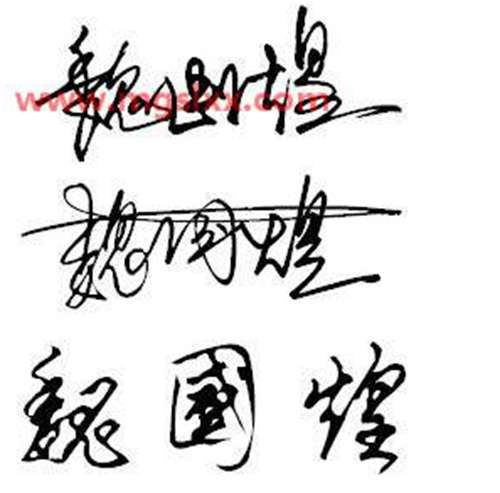 魏国煌
www.mgslxx.com
魏国煌
魏國煌